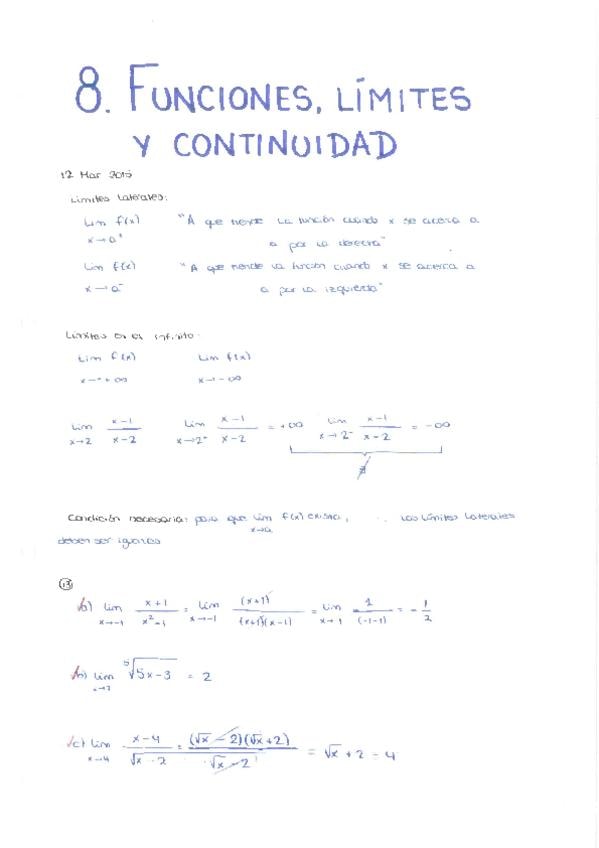 8. FUNCIONES, LÍMITES
Y CONTINUIDAD
12 Mar 2015
Límites laterales:
Lim f(x) "A que tiende la función cuando x se acerca a
x→a⁺ a por la derecha"
Lim f(x) "A que tiende la función cuando x se acerca a
x→a⁻ a por la izquierda"
Límites en el infinito:
Lim f(x) Lim f(x)
x→+∞ x→-∞
Lim x→2 (x-1)/(x-2) Lim x→2⁺ (x-1)/(x-2) = +∞ Lim x→2⁻ (x-1)/(x-2) = -∞
∄
Condición necesaria: para que Lim x→a f(x) exista, los límites laterales
deben ser iguales
13
a) Lim x→-1 (x+1)/(x²-1) = Lim x→-1 (x+1)/((x+1)(x-1)) = Lim x→-1 1/(-1-1) = -1/2
b) Lim ⁵√(5x-3) = 2
c) Lim x→4 (x-4)/(√x-2) = ((√x-2)(√x+2))/(√x-2) = √x+2-4